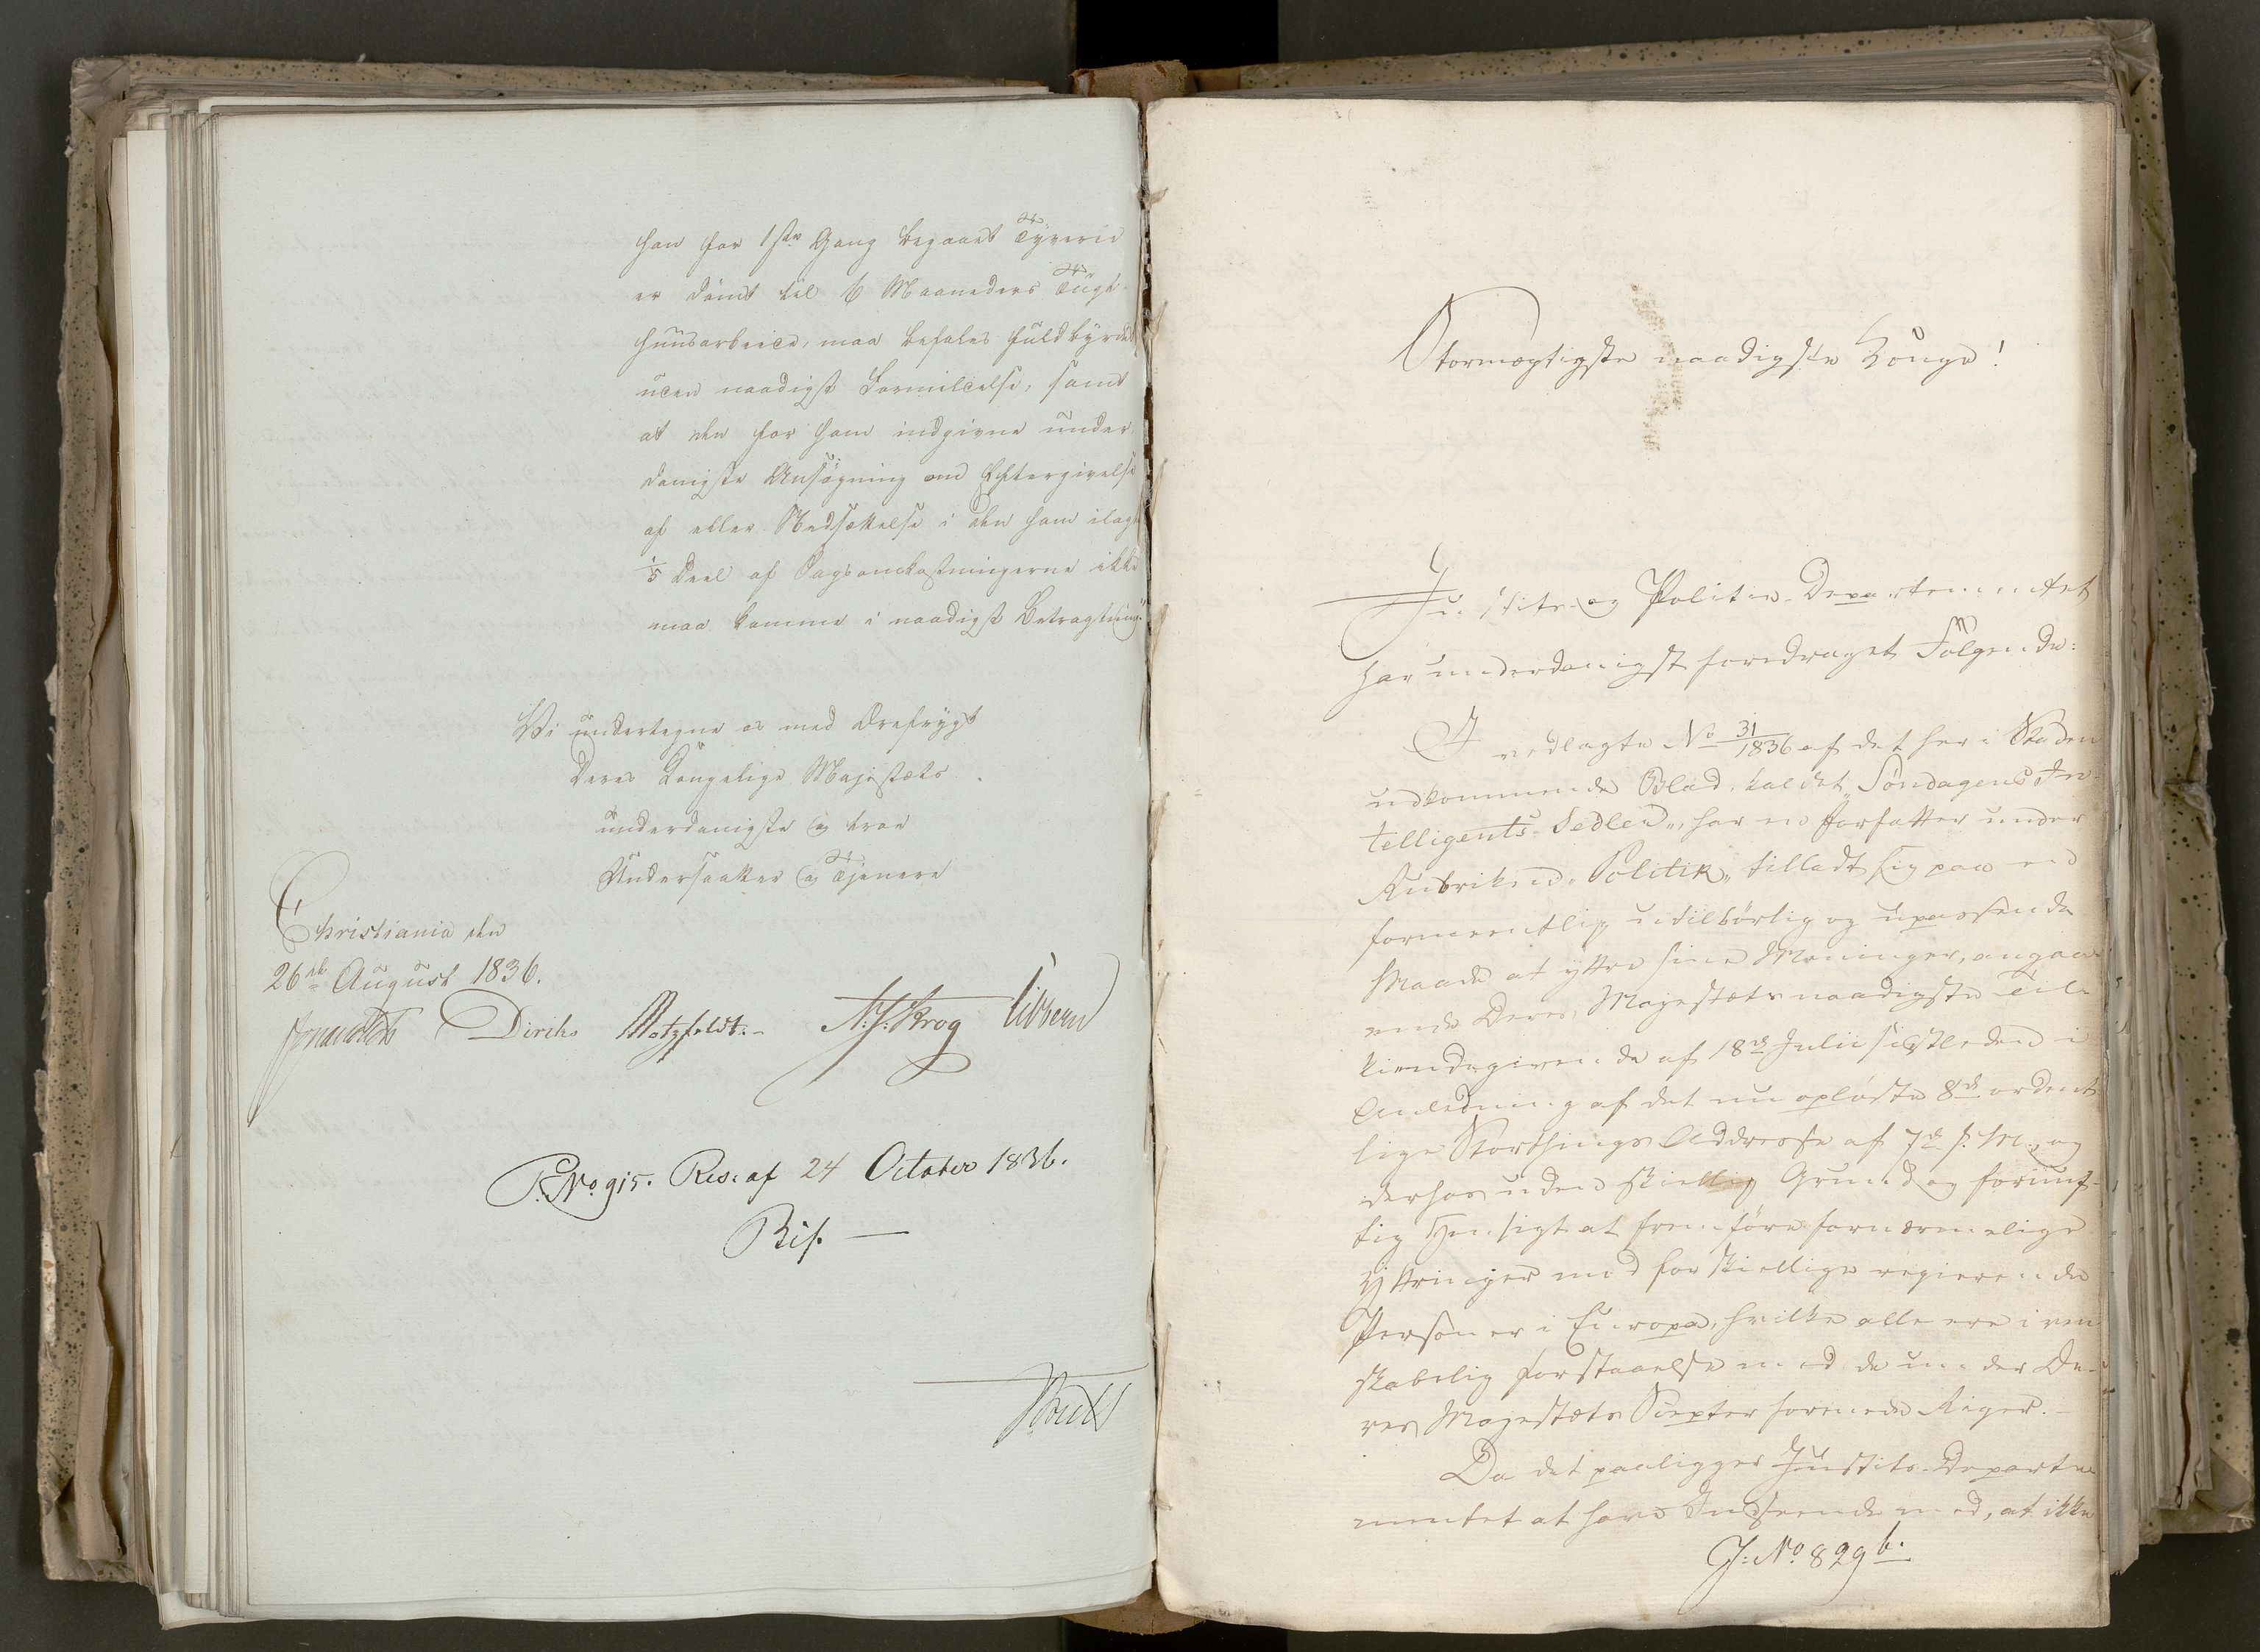 han for 1ste Gang begaaet Tyverie
er dømt til 6 Maaneders Tugt-
huusarbeide, maa befales fuldbyrdet
uden naadigst Formildelse, samt
at den for ham indgivne under-
danigste Ansøgning om Eftergivelse
af eller Nedsættelse i den ham ilagte
1/5 Deel af Sagsomkostningerne ikke
maa komme i naadigst Betragtning.
Vi undertegne os med Ærefrygt
Deres Kongelige Majestæts
underdanigste og troe
Undersaatter og Tjenere
Christiania den
26de August 1836.
Diriks Motzfeldt. N. J. Krog Vibe
P. No. 915. Res. af 24 October 1836.
Bif. —
Stormægtigste naadigste Konge!
Justits- og Politie-Departementet
har underdanigst foredraget Følgende:
I vedlagte No 31/1836 af det her i Staden
udkommende Blad, kaldet „Søndagens In-
telligents-Sedler„, har en Forfatter under
Rubriken „Politik„ tilladt sig paa en
formeentlig utilbørlig og upassende
Maade at yttre sine Meninger, angaa-
ende Deres Majestæts naadigste Til-
kiendegivende af 18de Julii sidstleden i
Anledning af det nu opløste 8de ordent-
lige Storthings Addresse af 7de s. M., og
derhos uden skiellig Grund og fornuf-
tig Hensigt at fremføre fornærmelige
Yttringer mod forskiellige regierende
Personer i Europa, hvilke alle ere i ven-
skabelig Forstaaelse med de under De-
res Majestæts Scepter forenede Riger. –
Da det paaligger Justits-Departe-
mentet at have Indseende med, at ikke
J: No 829 b.